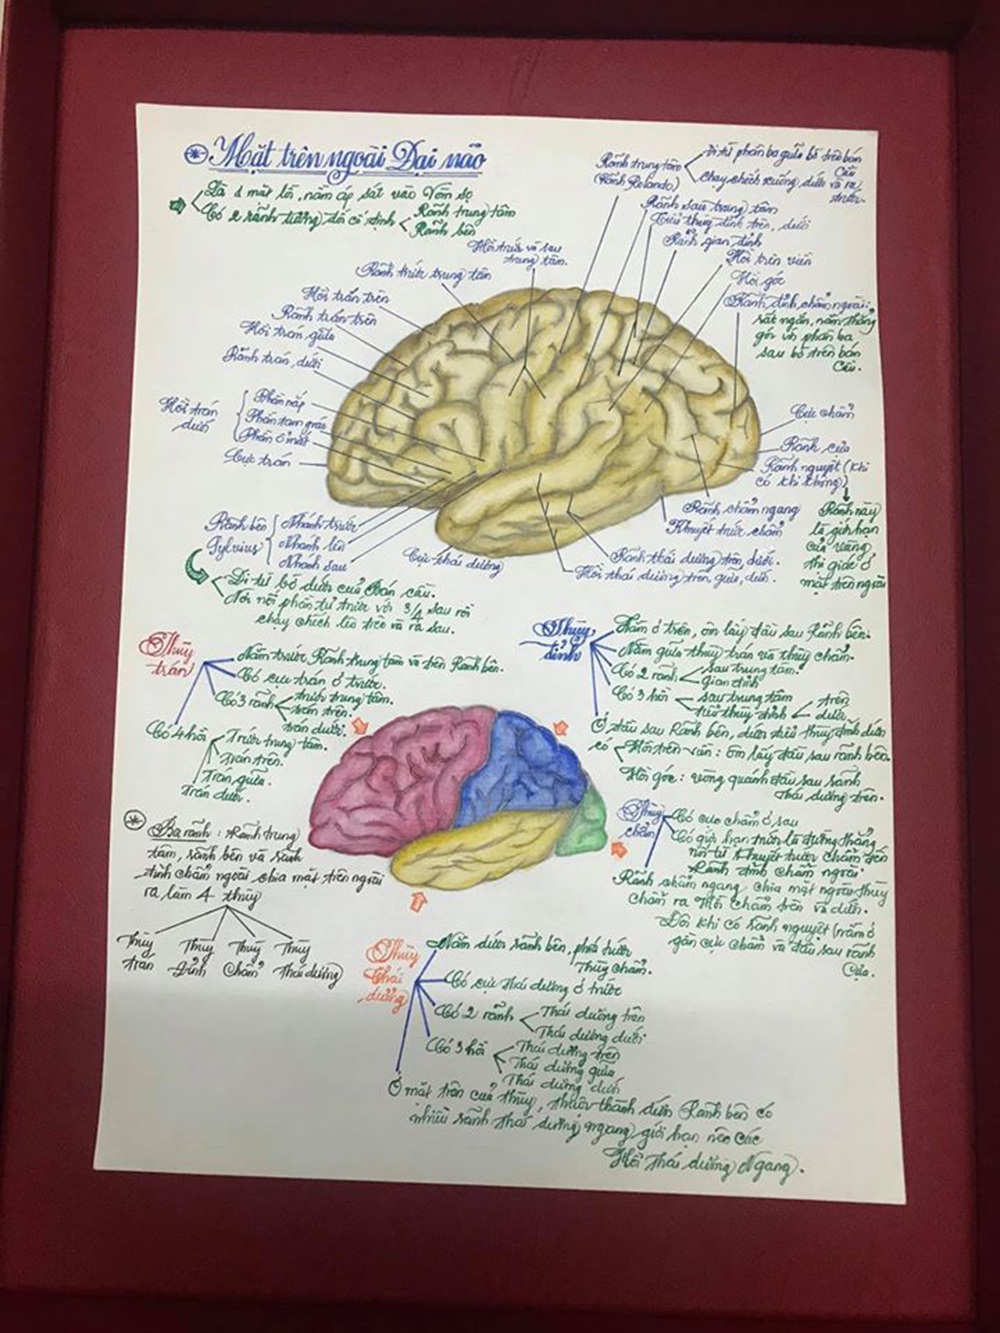 Mặt trên ngoài Đại não
Là 1 mặt lồi, nằm áp sát vào Vòm sọ
Có 2 rãnh tương đối cố định
Rãnh trung tâm
Rãnh bên
Rãnh trung tâm
(Rãnh Rolando)
Đi từ phần ba giữa bờ trên bán
Cầu
chạy chếch xuống dưới và ra
trước.
Rãnh sau trung tâm
Tiểu thùy đỉnh trên, dưới
Rãnh gian đỉnh
Hồi trên viền
Hồi góc
Rãnh đỉnh chẩm ngoài:
rất ngắn, nằm thẳng
góc với phần ba
sau bờ trên bán
Cầu.
Hồi trước và sau
trung tâm.
Rãnh trước trung tâm
Hồi trán trên
Rãnh trán trên
Hồi trán giữa
Rãnh trán dưới
Hồi trán
dưới
Phần nắp
Phần tam giác
Phần ổ mắt
Cực trán
Cực chẩm
Rãnh cựa
Rãnh nguyệt (khi
có khi không)
Rãnh này
là giới hạn
của vùng
thị giác ở
mặt trên ngoài
Rãnh chẩm ngang
Khuyết trước chẩm
Rãnh thái dương trên, dưới.
Hồi thái dương trên, giữa, dưới.
Cực thái dương
Rãnh bên
Sylvius
Nhánh trước
Nhánh lên
Nhánh sau
Đi từ bờ dưới của Bán cầu.
Nơi nối phần tư trước với 3/4 sau rồi
chạy chếch lên trên và ra sau.
Thùy
trán
Nằm trước Rãnh trung tâm và trên Rãnh bên.
Có cực trán ở trước.
Có 3 rãnh
trước trung tâm.
trán trên.
trán dưới.
Có 4 hồi
Trước trung tâm.
Trán trên.
Trán giữa.
Trán dưới.
Thùy
đỉnh
Nằm ở trên, ôm lấy đầu sau Rãnh bên.
Nằm giữa thùy trán và thùy chẩm.
Có 2 rãnh
sau trung tâm.
gian đỉnh
Có 3 hồi
sau trung tâm
tiểu thùy đỉnh
trên
dưới
Ở đầu sau Rãnh bên, dưới tiểu thùy đỉnh dưới
có
Hồi trên viền: ôm lấy đầu sau rãnh bên.
Hồi góc: vòng quanh đầu sau rãnh
Thái dương trên.
Ba rãnh: Rãnh trung
tâm, rãnh bên và rãnh
đỉnh chẩm ngoài chia mặt trên ngoài
ra làm 4 thùy
Thùy
trán
Thùy
Đỉnh
Thùy
Chẩm
Thùy
Thái dương
Thùy
chẩm
Có cực chẩm ở sau
Có giới hạn trước là đường thẳng
nối từ Khuyết trước chẩm đến
Rãnh đỉnh chẩm ngoài.
Rãnh chẩm ngang chia mặt ngoài thùy
chẩm ra Hồi chẩm trên và dưới.
Đôi khi có rãnh nguyệt (nằm ở
gần cực chẩm và đầu sau rãnh
Cựa.
Thùy
thái
dương
Nằm dưới rãnh bên, phía trước
Thùy chẩm.
Có cực thái dương ở trước
Có 2 rãnh
Thái dương trên
Thái dương dưới
Có 3 hồi
Thái dương trên
Thái dương giữa
Thái dương dưới
Ở mặt trên của thùy, thuộc thành dưới Rãnh bên có
nhiều rãnh thái dương ngang giới hạn nên các
Hồi Thái dương Ngang.